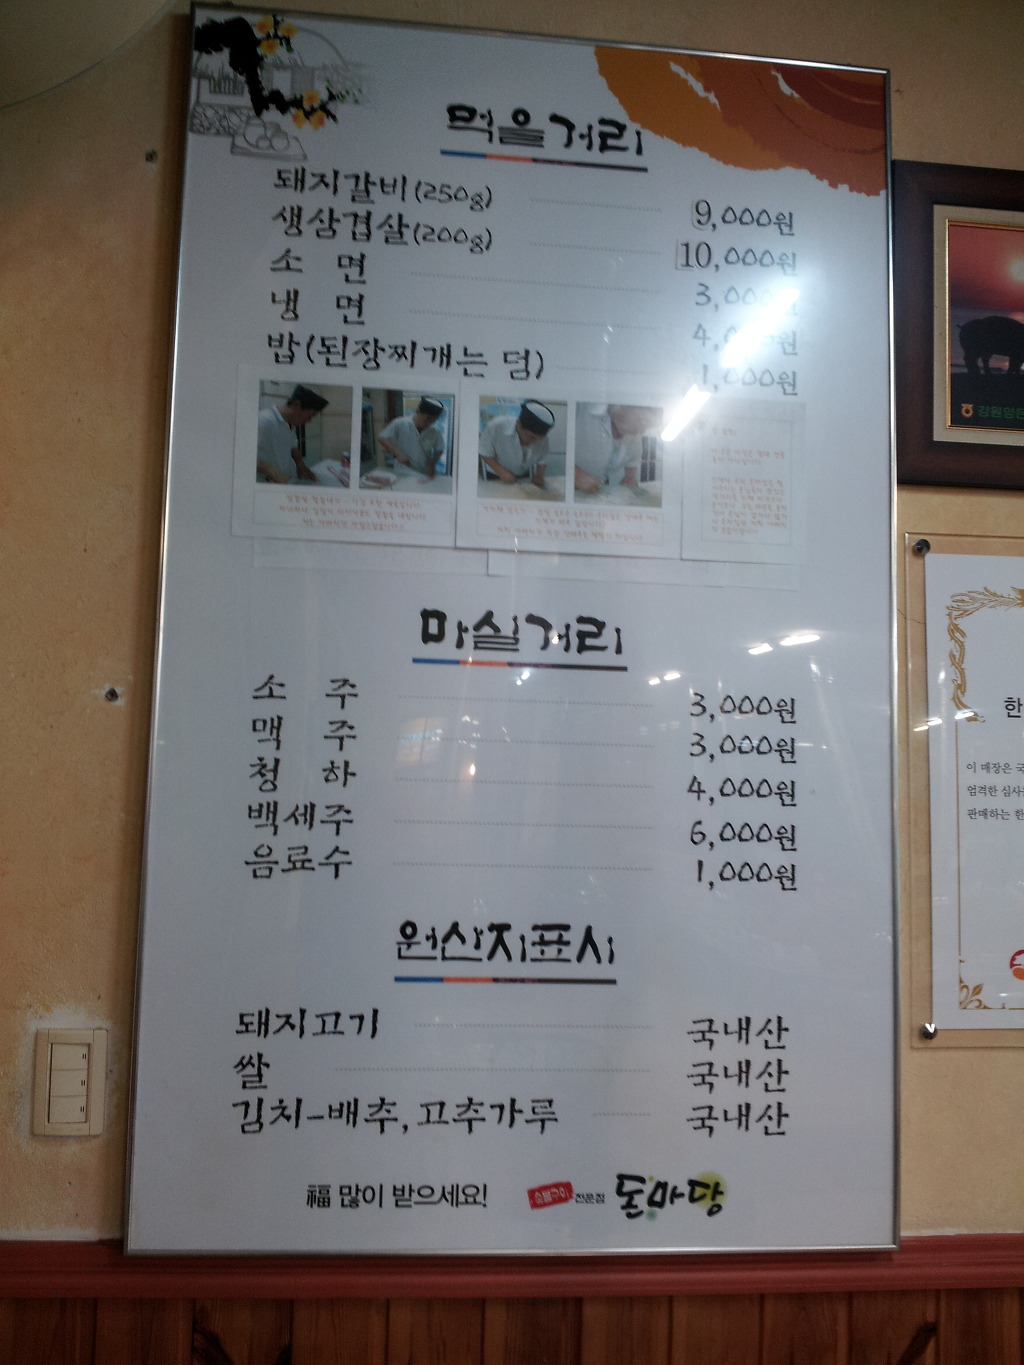 먹을거리
돼지갈비(250g) 9,000원
생삼겹살(200g) 10,000원
소 면 3,000원
냉 면 4,000원
밥(된장찌개는 덤) 1,000원
마실거리
소 주 3,000원
맥 주 3,000원
청 하 4,000원
백세주 6,000원
음료수 1,000원
원산지표시
돼지고기 국내산
쌀 국내산
김치-배추,고추가루 국내산
福 많이 받으세요!
숯불구이 전문점 돈마당
강원양돈
한
이 매장은 국
엄격한 심사
판매하는 한